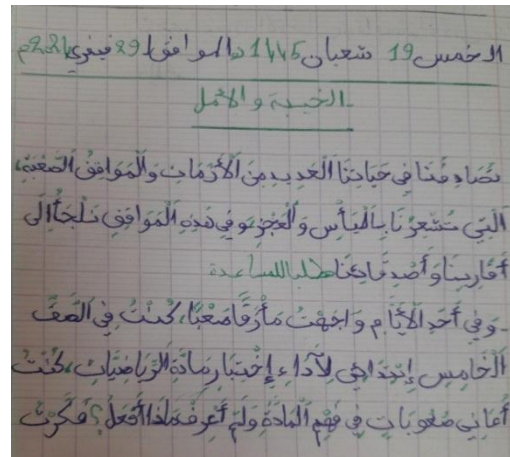 الخميس 19 شعبان 1445 الموافق لـ 29 فيفري 2024م
الخيبة والأمل
تصَادِفُنَا فِي حَيَاتِنَا الْعَدِيدِ مِنَ الْأَزَمَاتِ وَالْمَوَاقِفُ الصَّعْبَةِ،
الَّتِي تُشْعِرُنَا بِالْيَأْسِ وَالْعَجْزِ، وَفِي هَذِهِ الْمَوَاقِفِ نَلْجَأُ إِلَى
أَقَارِبِنَا وَأَصْدِقَائِنَا طلبا للمساعدة
- وَفِي أَحَدِ الْأَيَّامِ وَاجَهْتُ مَأْزَقًا صَعْبًا، كُنْتُ فِي الصَّفِّ
الْخَامِسِ إِبْتِدَائِي لِآدَاءِ إِخْتِبَارِ مَادَّةِ الرِّيَاضِيَّاتِ، كُنْتُ
أُعَانِي صُعُوبَاتٍ فِي فَهْمِ الْمَادَّةِ وَلَمْ أَعْرِفْ مَاذَا أَفْعَلُ؟ فَكَّرْتُ